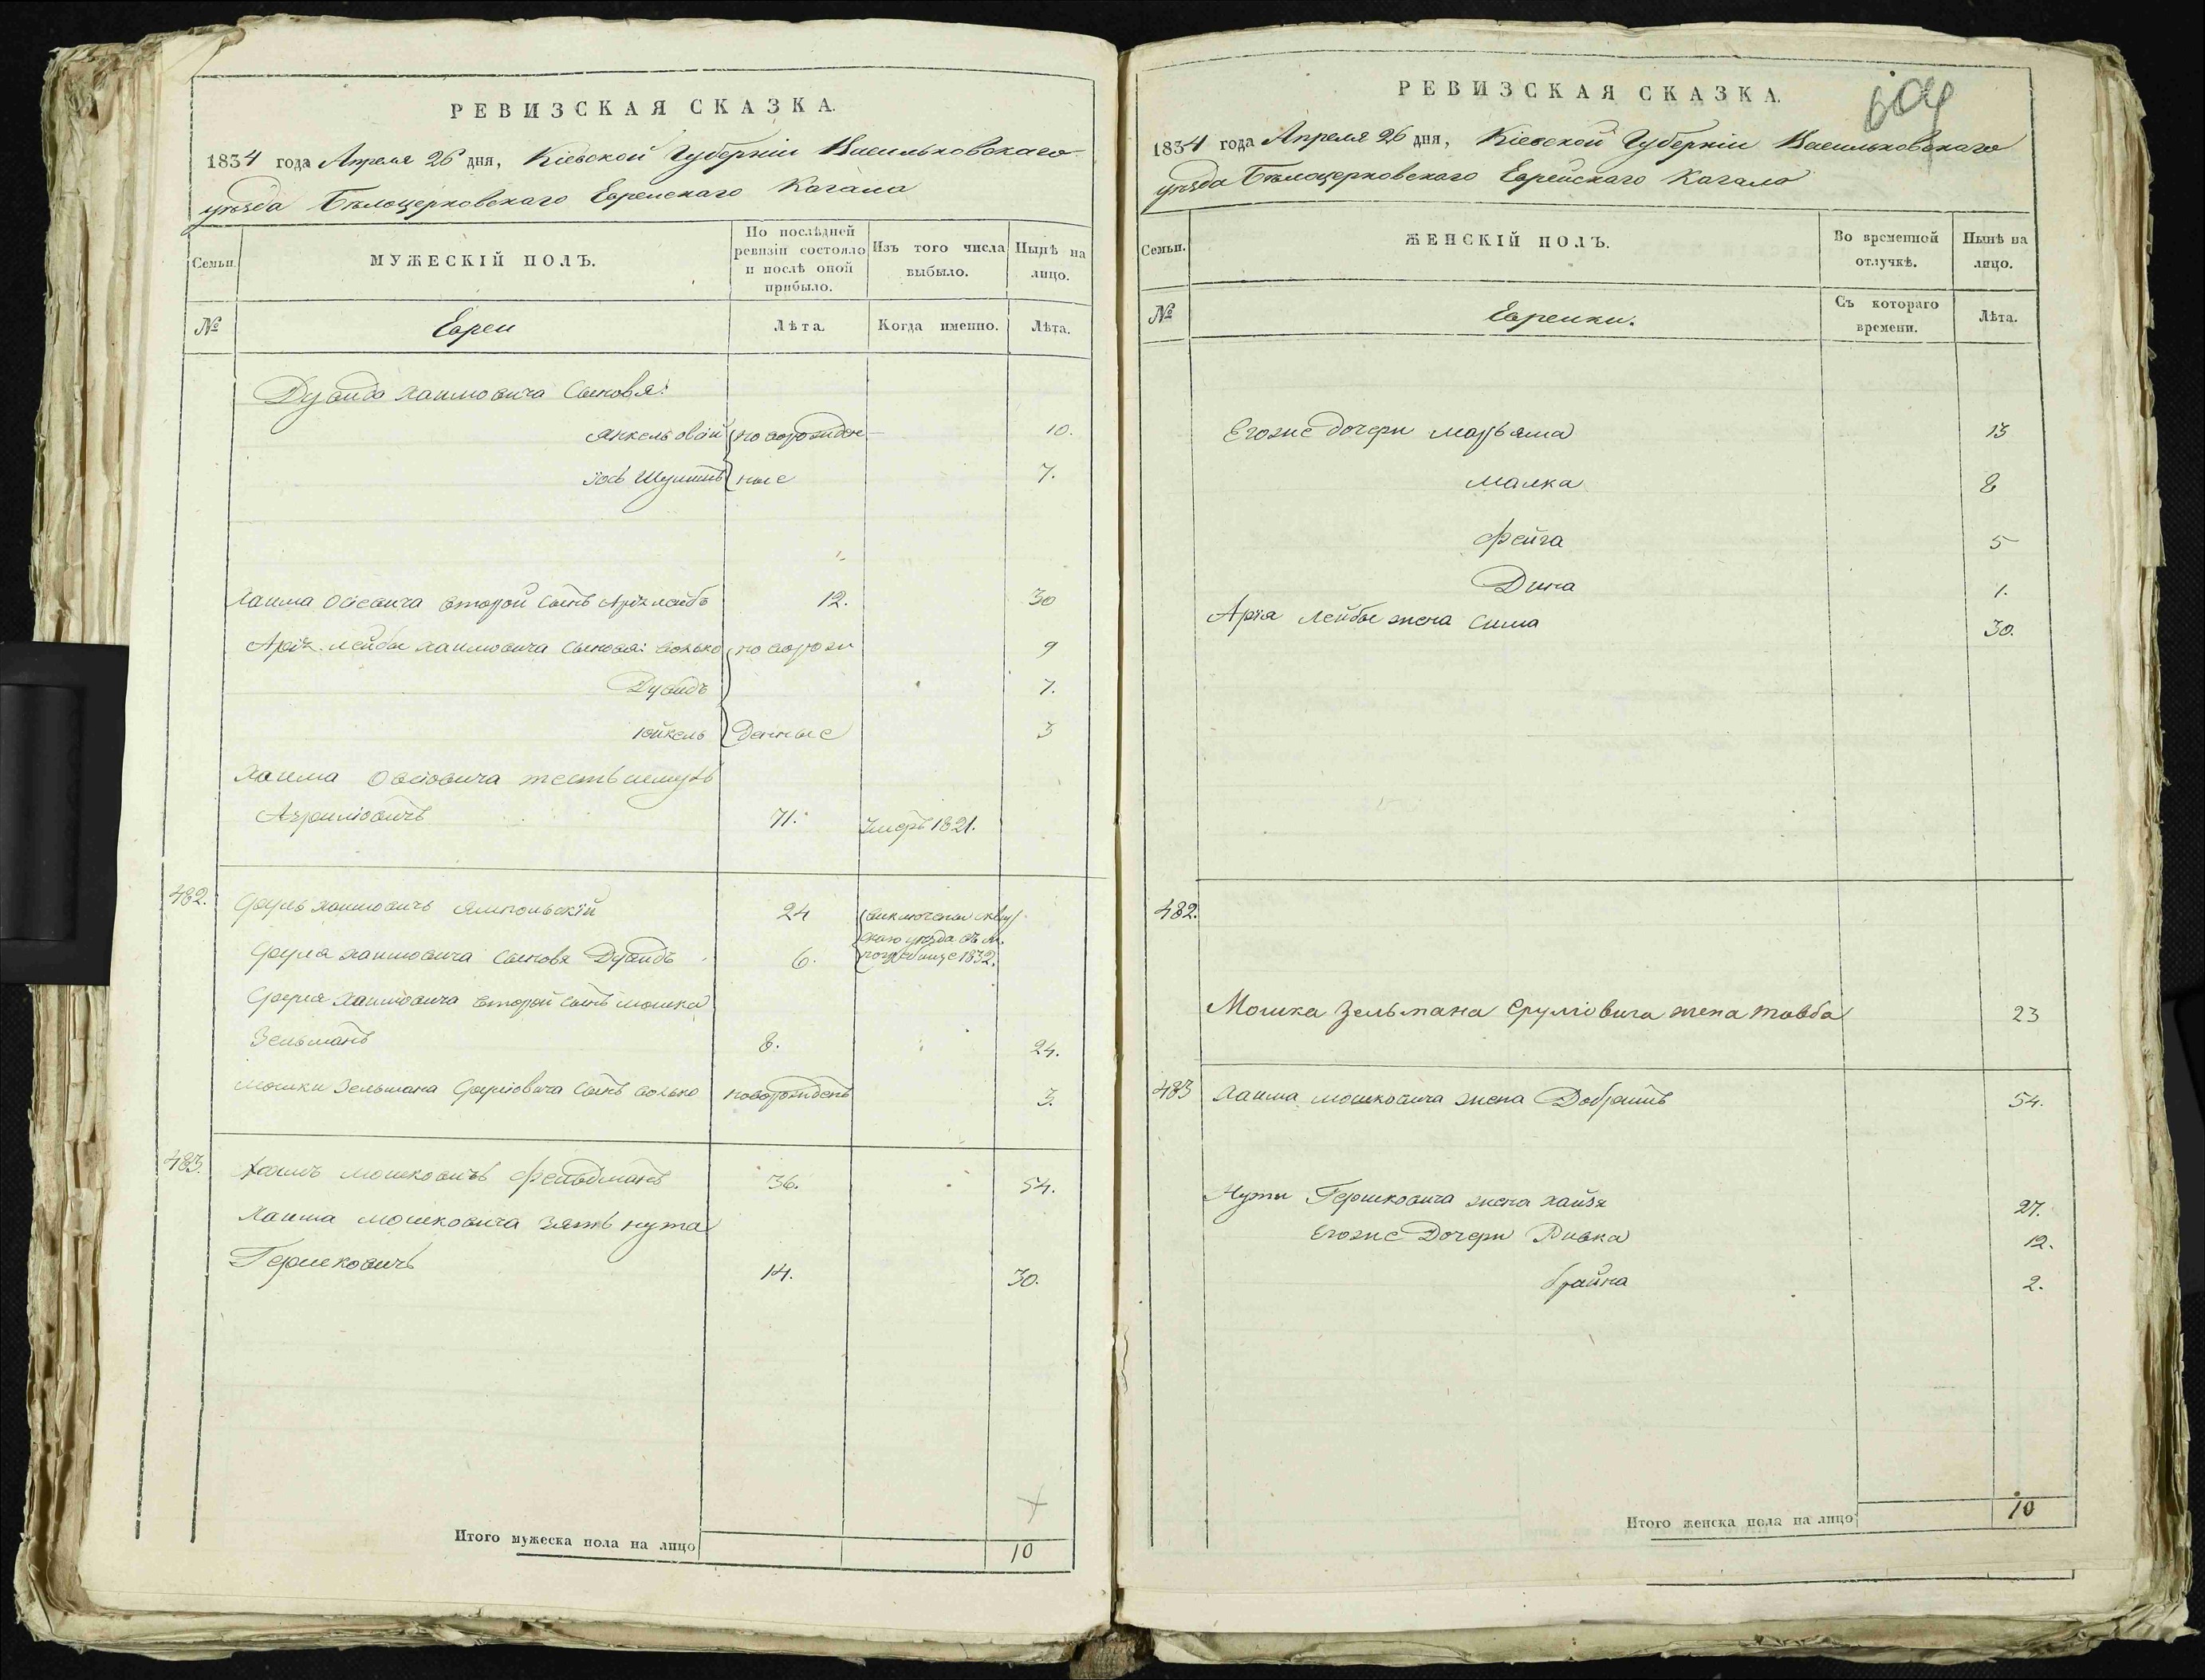 РЕВИЗСКАЯ СКАЗКА.
1834 года Апреля 26 дня, Кіевской Губерніи Васильковскаго
уѣзда Бѣлоцерковскаго Еврейскаго Кагала
Семьи.
МУЖЕСКІЙ ПОЛЪ.
По послѣдней ревизіи состояло и послѣ оной прибыло.
Изъ того числа выбыло.
Нынѣ на лицо.
№
Евреи
Лѣта.
Когда именно.
Лѣта.
Дувида Хаимовича сыновя:
Янкель новорожден 10.
Іось ные 7.
Хаима второй сынъ Арія Лейбъ 12. 30
Арія Лейбы Хаимовича сыновя: Волько новорож 9
Дувидъ 7.
Юйкель денные 3
Хаима Овсіовича тесть
71. умеръ 1821.
482. Сруль Хаимовичъ Ямпольскій 24 исключены
уѣзда въ м.
Сруля Хаимовича сыновя Дувидъ 6. 1832.
Сруля Хаимовича второй сынъ Мошка
Зельманъ 8. 24.
Мошки Зельмана Сруліовича сынъ Волько новорожденъ 3.
483. Хаимъ Мошковичъ Фельдманъ 36. 54.
Хаима Мошковича зять Нута
Гершковичъ 14. 30.
Итого мужеска пола на лицо 10
604
РЕВИЗСКАЯ СКАЗКА.
1834 года Апреля 26 дня, Кіевской Губерніи Васильковскаго
уѣзда Бѣлоцерковскаго Еврейскаго Кагала
Семьи.
ЖЕНСКІЙ ПОЛЪ.
Во временной отлучкѣ.
Нынѣ на лицо.
№
Еврейки.
Съ котораго времени.
Лѣта.
Егоже дочери Марьяма 13
Малка 8
Фейга 5
Дина 1.
Арія Лейбы жена Сима 30.
482.
Мошка Зельмана Сруліовича жена Товба 23
483 Хаима Мошковича жена Добришъ 54.
Нуты Гершковича жена Хайзя 27.
Егоже Дочери Ривка 12.
Брайна 2.
Итого женска пола на лицо 10